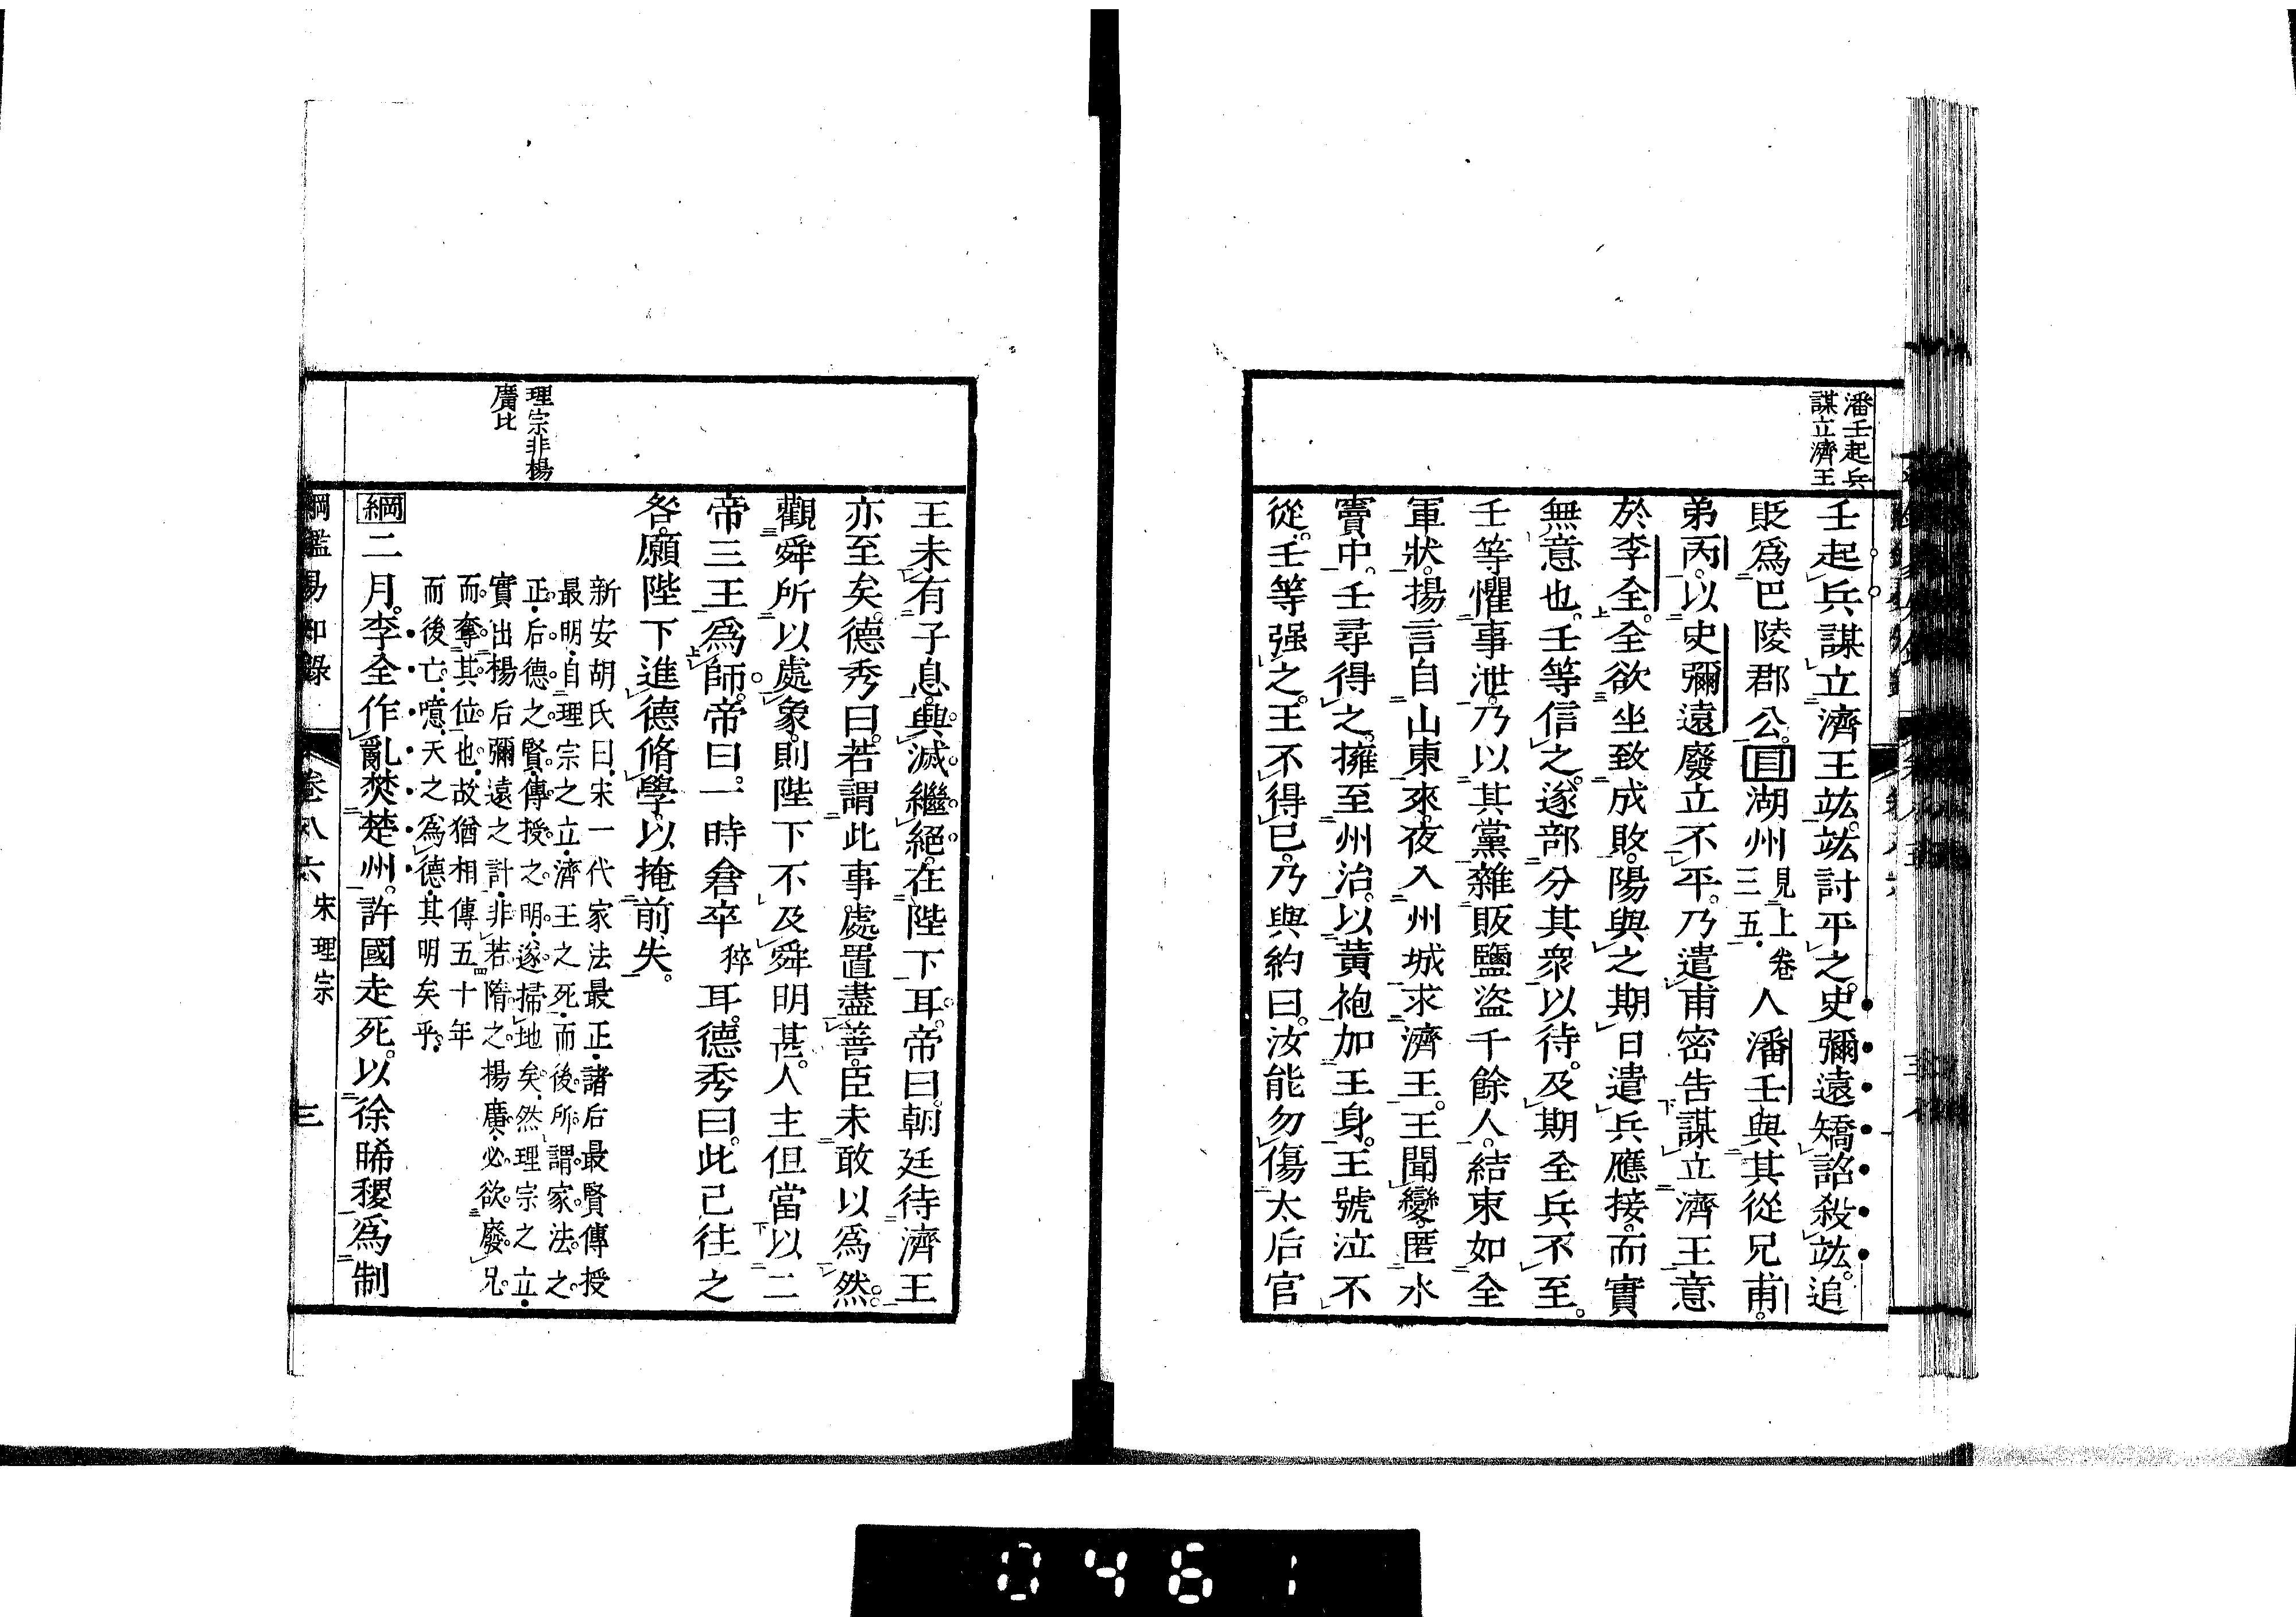 潘壬起兵
謀立濟王
壬起兵謀立濟王竑。竑討平之。史彌遠矯詔殺竑。追
貶爲巴陵郡公。目湖州見上卷三五人潘壬與其從兄甫。
弟丙。以史彌遠廢立不平。乃遣甫密告謀立濟王意
於李全。全欲坐致成敗。陽與之期日遣兵應接。而實
無意也。壬等信之。遂部分其衆以待。及期全兵不至。
壬等懼事泄。乃以其黨雜販鹽盜千餘人。結束如全
軍狀。揚言自山東來。夜入州城求濟王。王聞變。匿水
竇中。壬尋得之。擁至州治。以黃袍加王身。王號泣不
從。壬等强之。王不得已。乃與約曰。汝能勿傷太后官
王未有子息。興滅繼絕。在陛下耳。帝曰。朝廷待濟王
亦至矣。德秀曰。若謂此事處置盡善。臣未敢以爲然。
觀舜所以處象。則陛下不及舜明甚。人主但當以二
帝三王爲師。帝曰。一時倉卒猝耳。德秀曰。此已往之
咎。願陛下進德脩學。以掩前失。
理宗非楊
廣比
新安胡氏曰。宋一代家法最正。諸后最賢。傳授
最明。自理宗之立。濟王之死。而後所謂家法之
正。后德之賢。傳授之明。遂掃地矣。然理宗之立。
實出楊后彌遠之計。非若隋之楊廣。必欲廢兄
而奪其位也。故猶相傳五十年
而後亡。噫。天之爲德其明矣乎。
綱二月。李全作亂。焚楚州。許國走死。以徐晞稷爲制
綱鑑易知錄 卷八六 宋理宗 三
0461